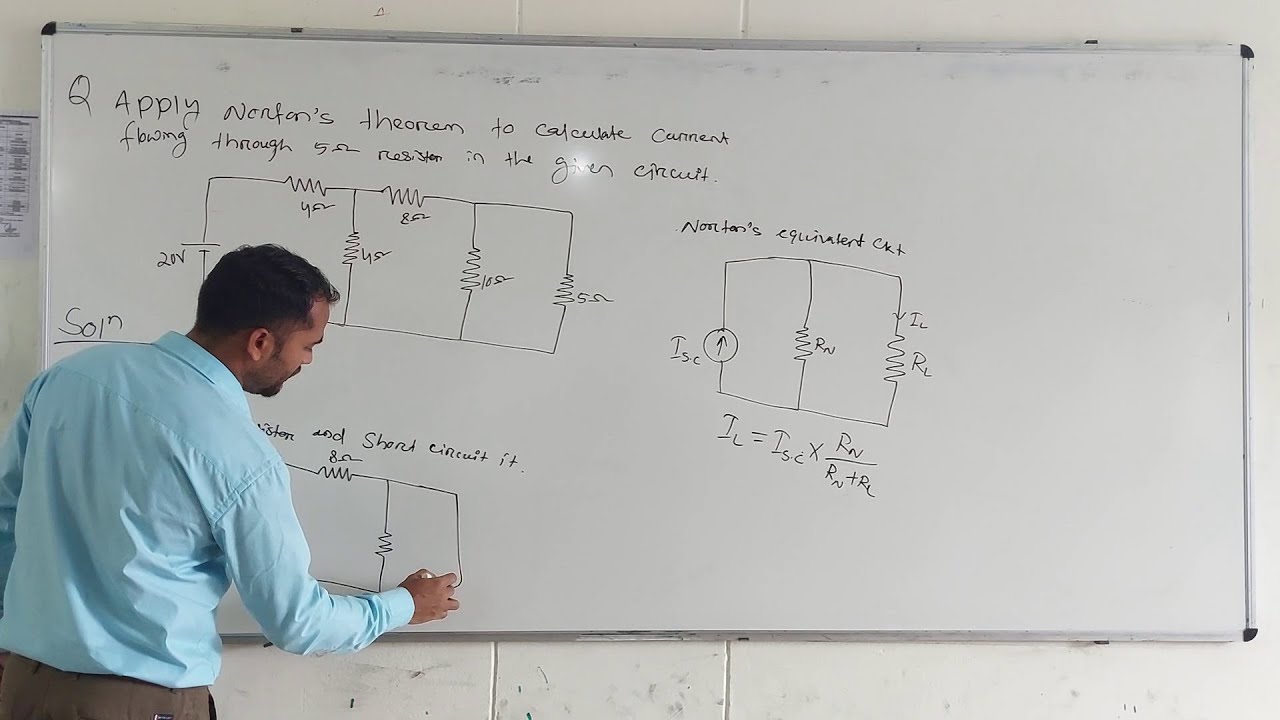 Q Apply Norton's theorem to calculate current
flowing through 5Ω resistor in the given circuit.
4Ω
8Ω
20V
4Ω
10Ω
5Ω
Soln
and Short circuit it.
8Ω
Norton's equivalent ckt
I_S.C
R_N
I_L
R_L
I_L = I_S.C × R_N / (R_N + R_L)